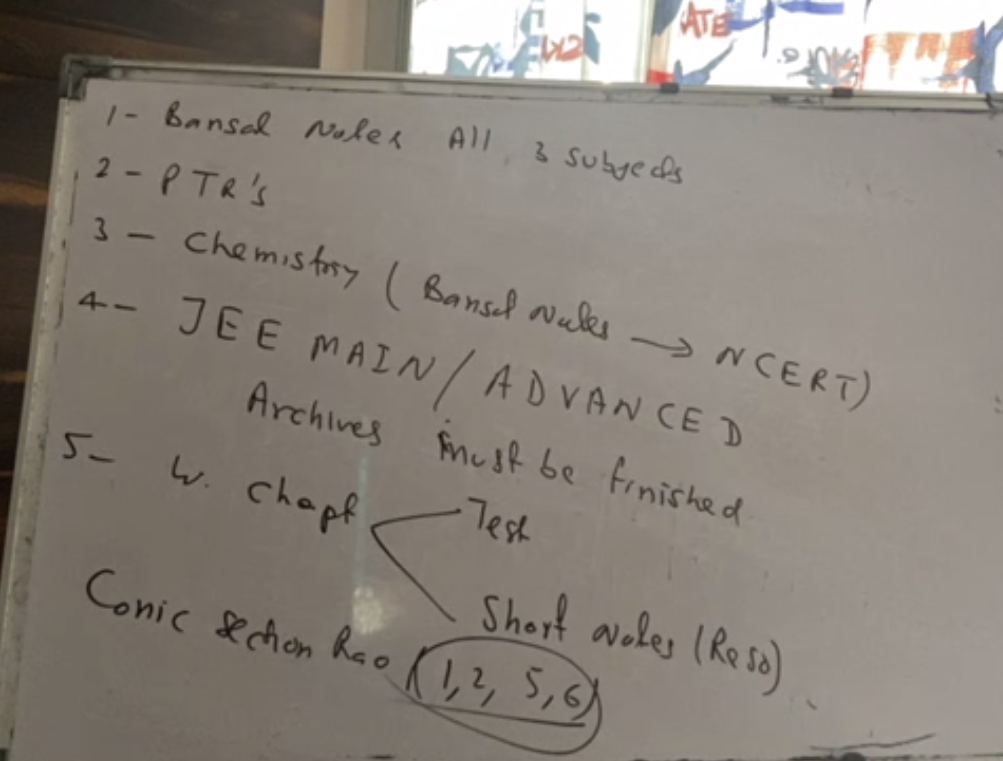 ATE
1- Bansal Notes All 3 subjects
2 - PTR's
3 - Chemistry ( Bansal Notes → NCERT)
4- JEE MAIN / ADVANCED
Archives must be finished
5- W. Chapt
Test
Short Notes (Reso)
Conic Section Rao (1, 2, 5, 6)